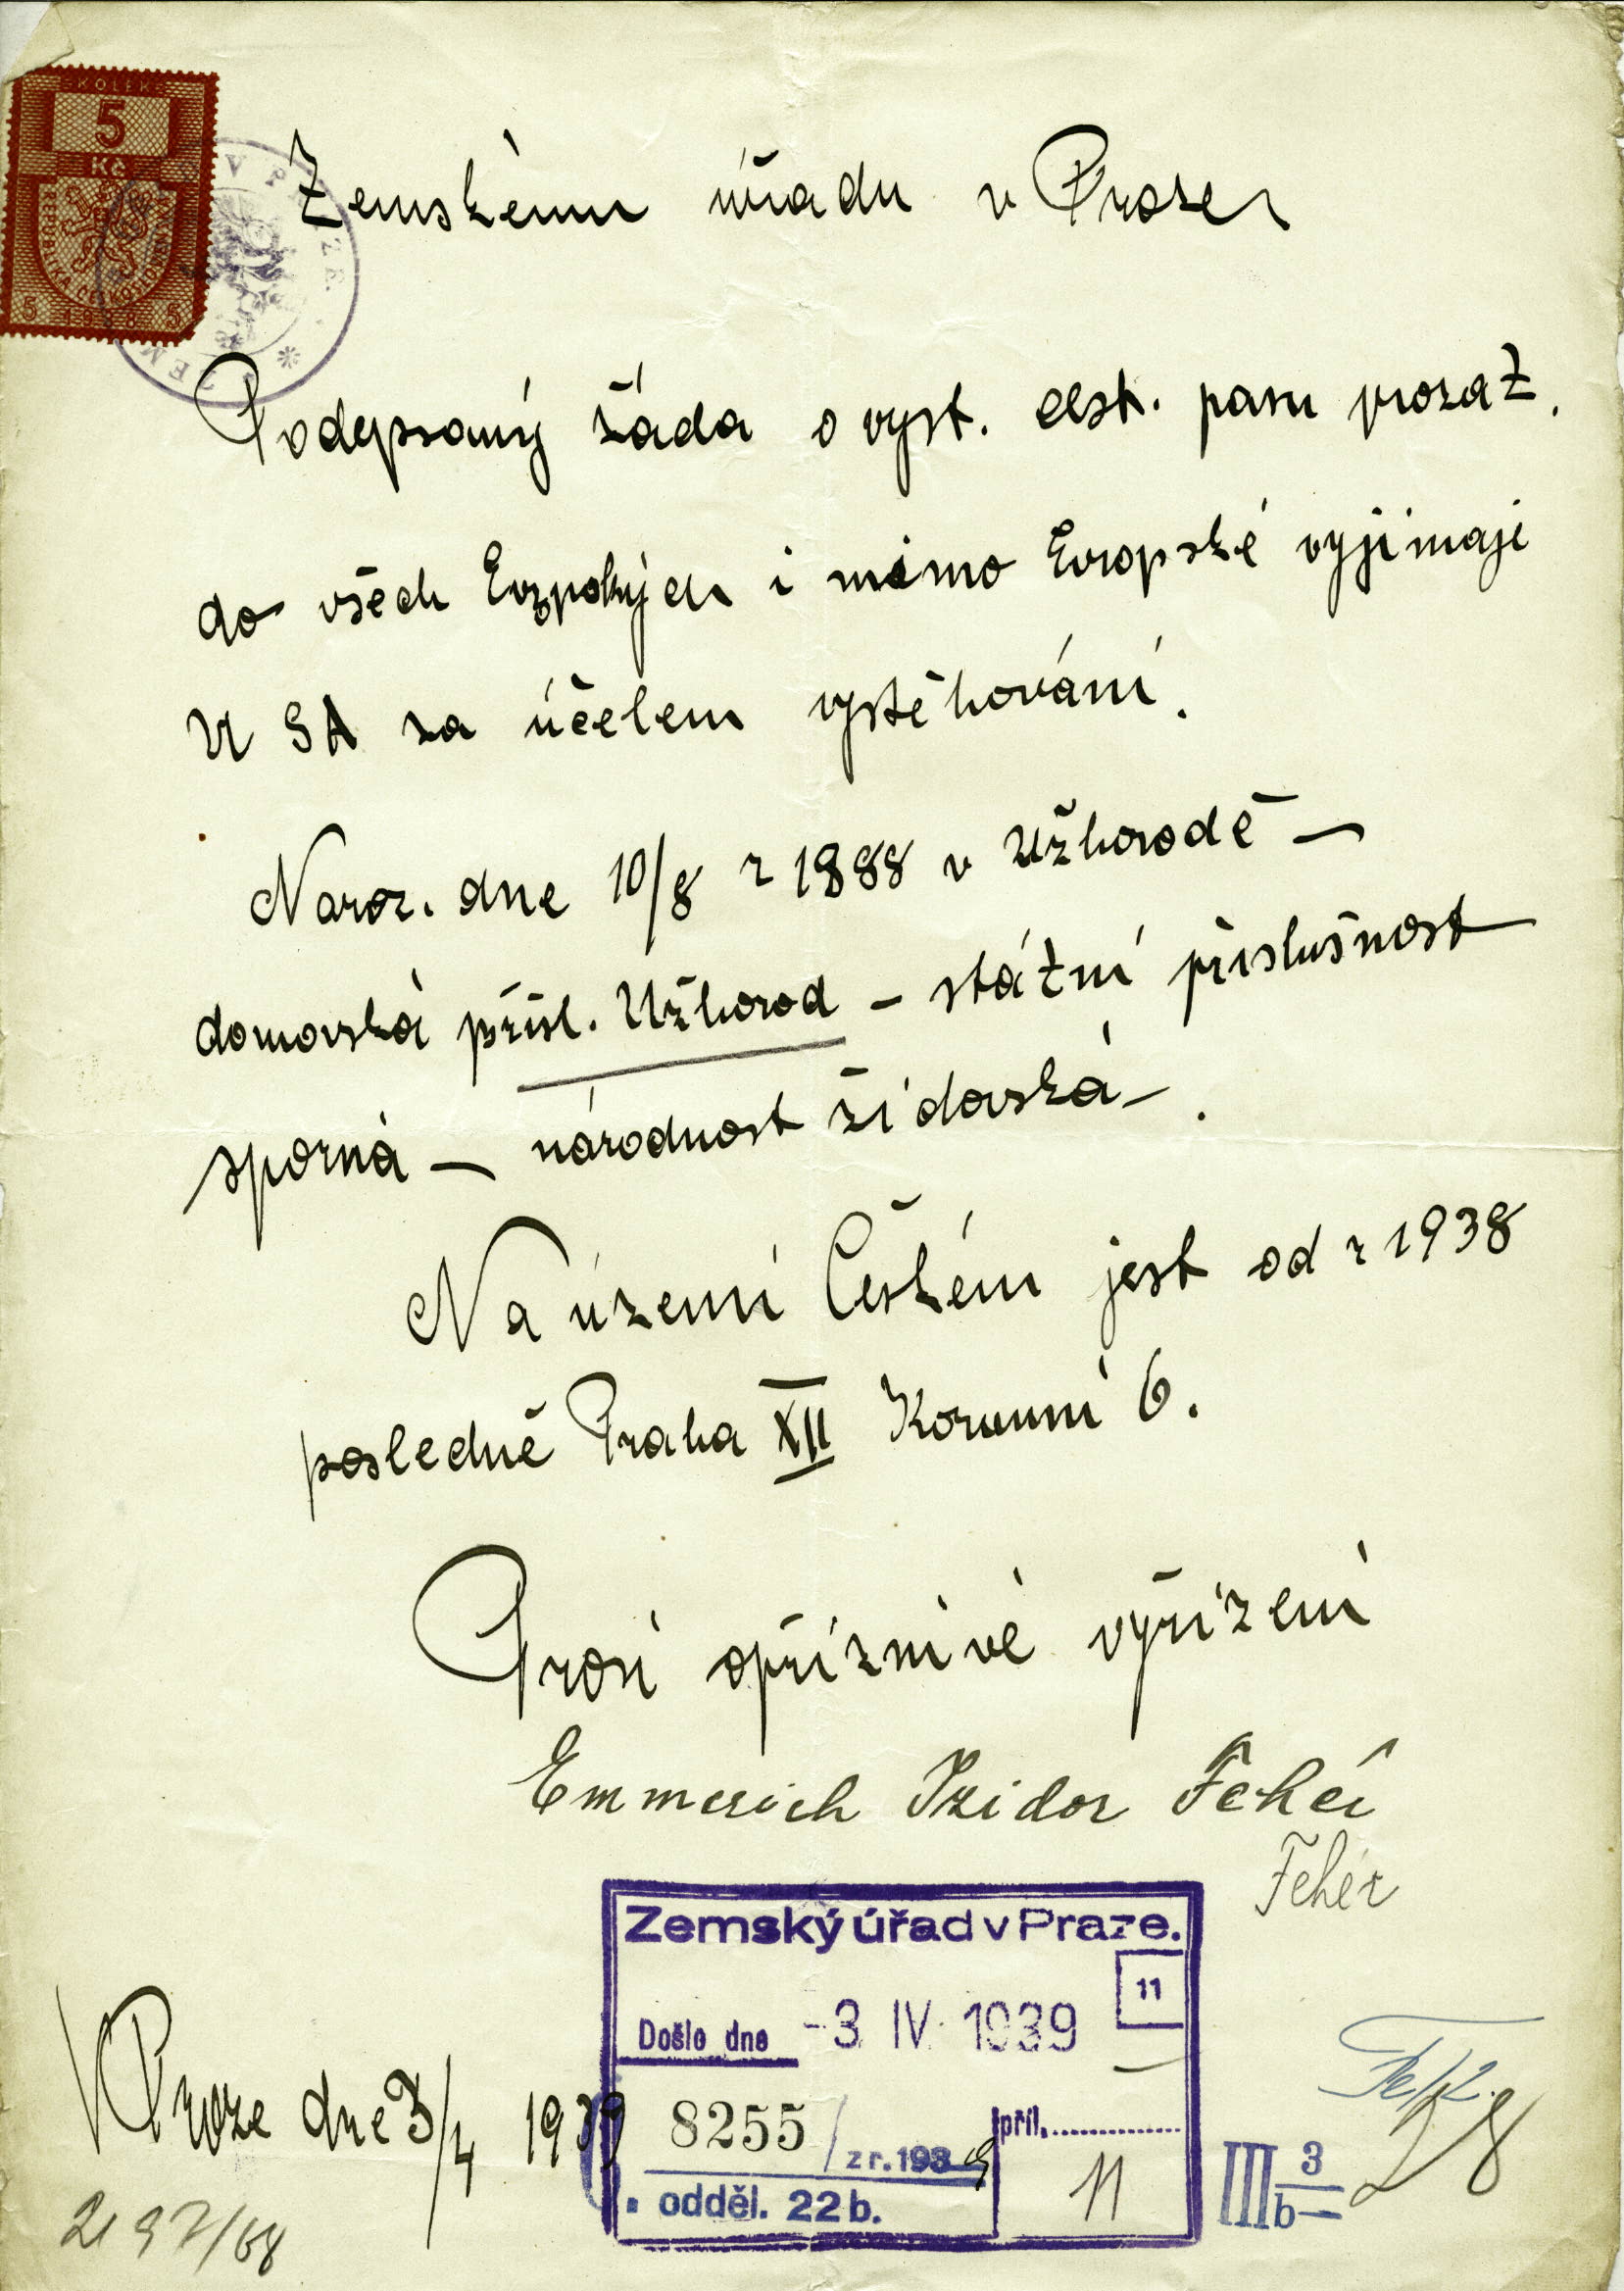 KOLEK
5
Kč
REPUBLIKA ČESKOSLOVENSKÁ
5 1938 5
Zemskému úřadu v Praze
Podepsaný žádá o vyst. cest. pasu prozat.
do všech Evropských i mimo Evropské vyjímaje
U S A za účelem vystěhování.
Naroz. dne 10/8 r 1888 v Užhorodě —
domovská přísl. Užhorod – státní příslušnost
sporná — národnost židovská – .
Na území Českém jest od r 1938
posledně Praha XII Korunní 6.
Prosí o příznivé vyřízení
Emmerich Izidor Fehér
Fehér
Zemský úřad v Praze.
11
Došlo dne -3 IV. 1939
8255 / z r. 1939
příl. ............
11
odděl. 22 b.
V Praze dne 3/4 1939
III 3
b—
28
2197/68